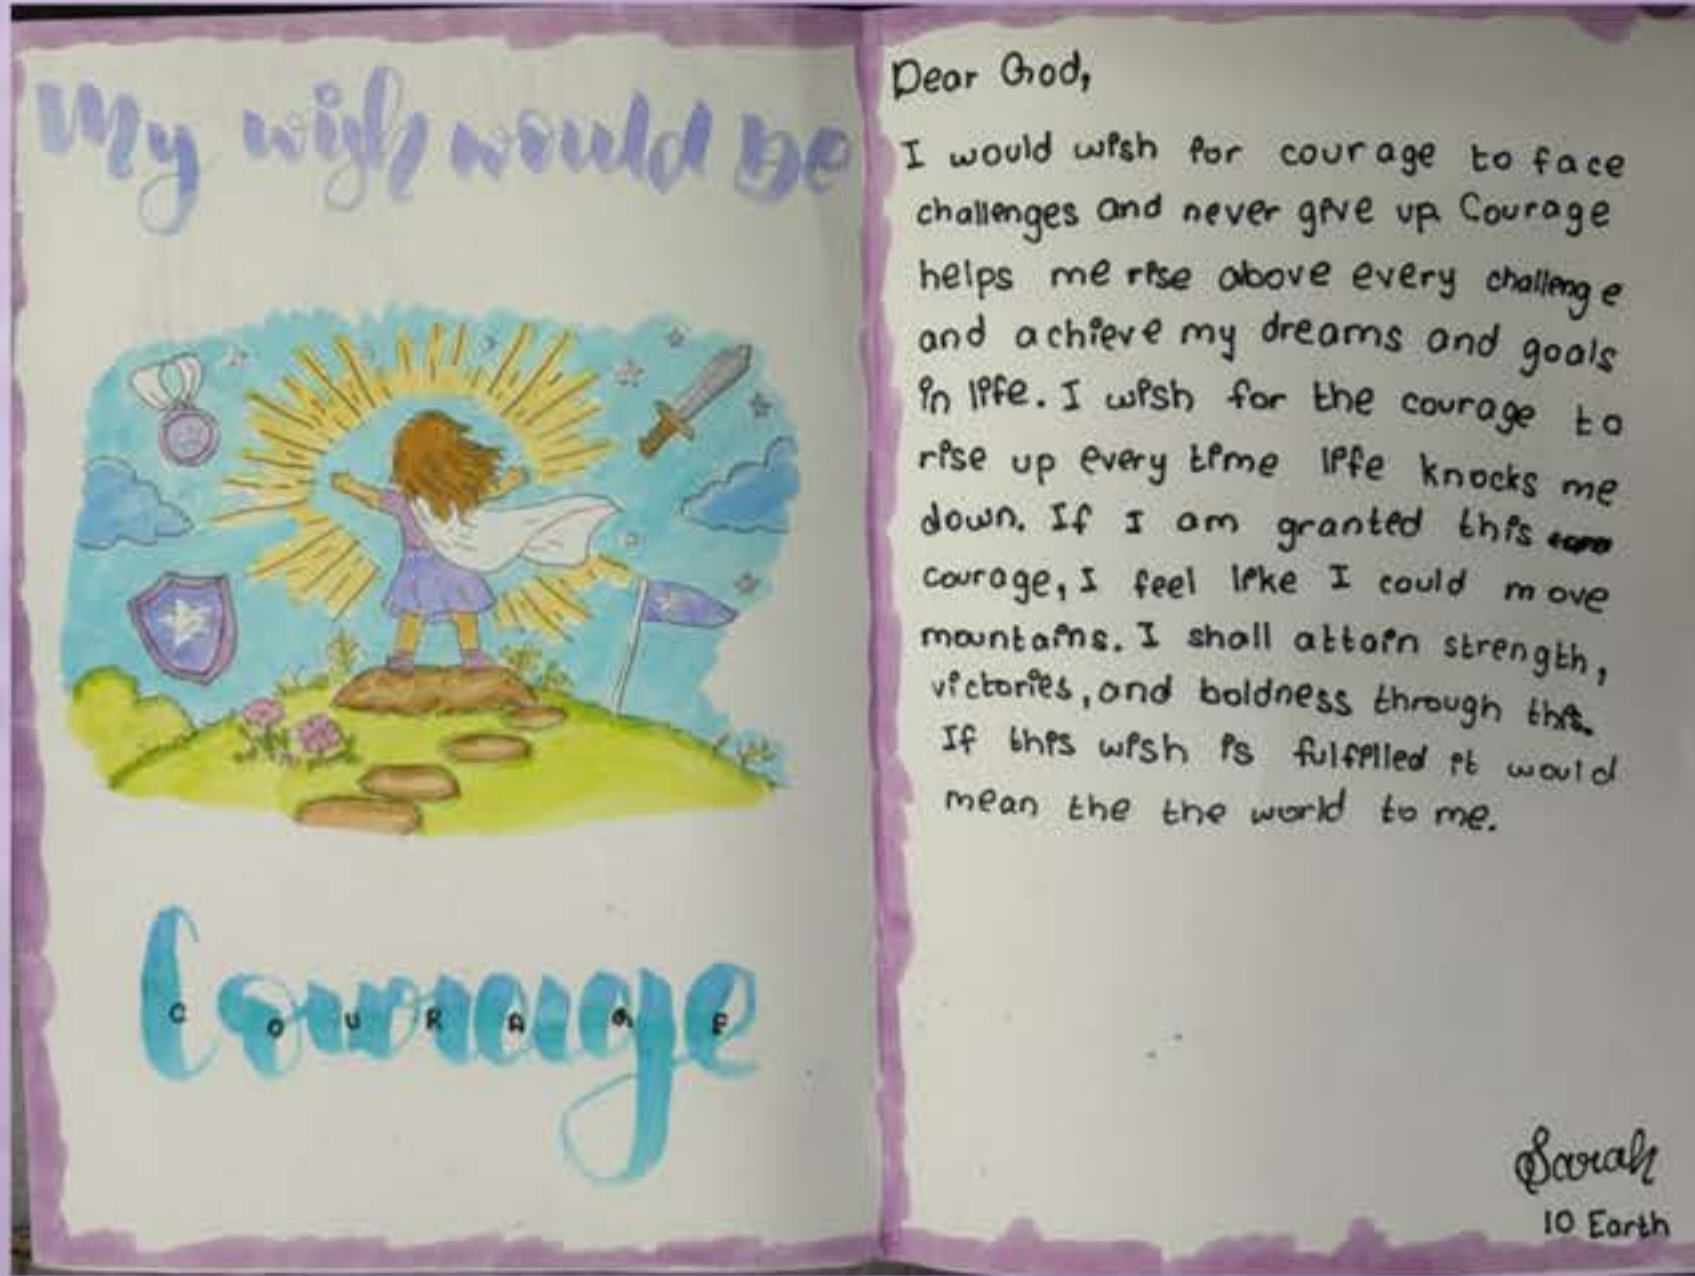 My wish would be
Courage
C O U R A G E
Dear God,
I would wish for courage to face
challenges and never give up. Courage
helps me rise above every challenge
and achieve my dreams and goals
in life. I wish for the courage to
rise up every time life knocks me
down. If I am granted this
courage, I feel like I could move
mountains. I shall attain strength,
victories, and boldness through this.
If this wish is fulfilled it would
mean the the world to me.
Sarah
10 Earth